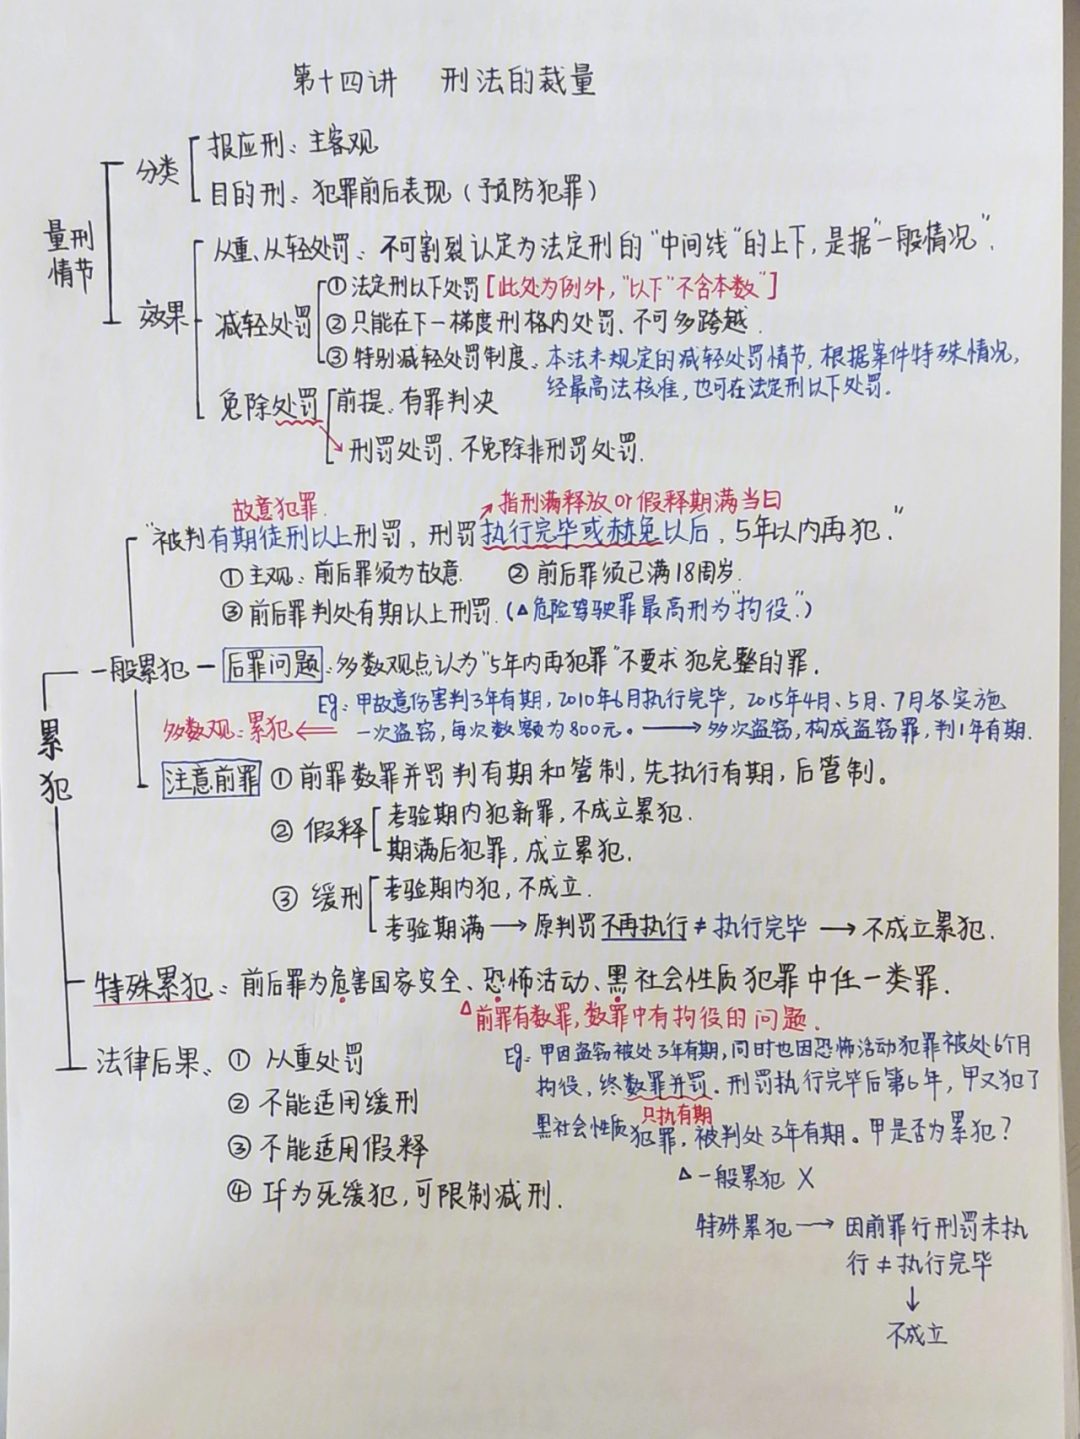 第十四讲 刑法的裁量
量刑情节
分类
报应刑：主客观
目的刑：犯罪前后表现（预防犯罪）
效果
从重、从轻处罚：不可割裂认定为法定刑的“中间线”的上下，是据“一般情况”.
减轻处罚
①法定刑以下处罚[此处为例外，“以下”不含本数”]
②只能在下一梯度刑格内处罚、不可多跨越.
③特别减轻处罚制度、本法未规定的减轻处罚情节，根据案件特殊情况，
经最高法核准，也可在法定刑以下处罚.
免除处罚
前提、有罪判决
刑罚处罚、不免除非刑罚处罚.
故意犯罪.
指刑满释放or假释期满当日
“被判有期徒刑以上刑罚，刑罚执行完毕或赦免以后，5年以内再犯.”
①主观：前后罪须为故意. ②前后罪须已满18周岁.
③前后罪判处有期以上刑罚.（△危险驾驶罪最高刑为“拘役”.）
累犯
一般累犯
后罪问题：多数观点认为“5年内再犯罪”不要求犯完整的罪.
Eg：甲故意伤害判3年有期，2010年6月执行完毕，2015年4月、5月、7月各实施
多数观：累犯⇐一次盗窃，每次数额为800元。→多次盗窃，构成盗窃罪，判1年有期.
注意前罪 ①前罪数罪并罚判有期和管制，先执行有期，后管制。
②假释
考验期内犯新罪，不成立累犯.
期满后犯罪，成立累犯.
③缓刑
考验期内犯，不成立.
考验期满→原判罚不再执行≠执行完毕→不成立累犯.
特殊累犯：前后罪为危害国家安全、恐怖活动、黑社会性质犯罪中任一类罪.
△前罪有数罪，数罪中有拘役的问题.
Eg：甲因盗窃被处3年有期，同时也因恐怖活动犯罪被处6个月
拘役，终数罪并罚.刑罚执行完毕后第6年，甲又犯了
只执有期
黑社会性质犯罪，被判处3年有期。甲是否为累犯？
△一般累犯 X
特殊累犯→因前罪行刑罚未执
行≠执行完毕
↓
不成立
法律后果、①从重处罚
②不能适用缓刑
③不能适用假释
④If为死缓犯，可限制减刑.